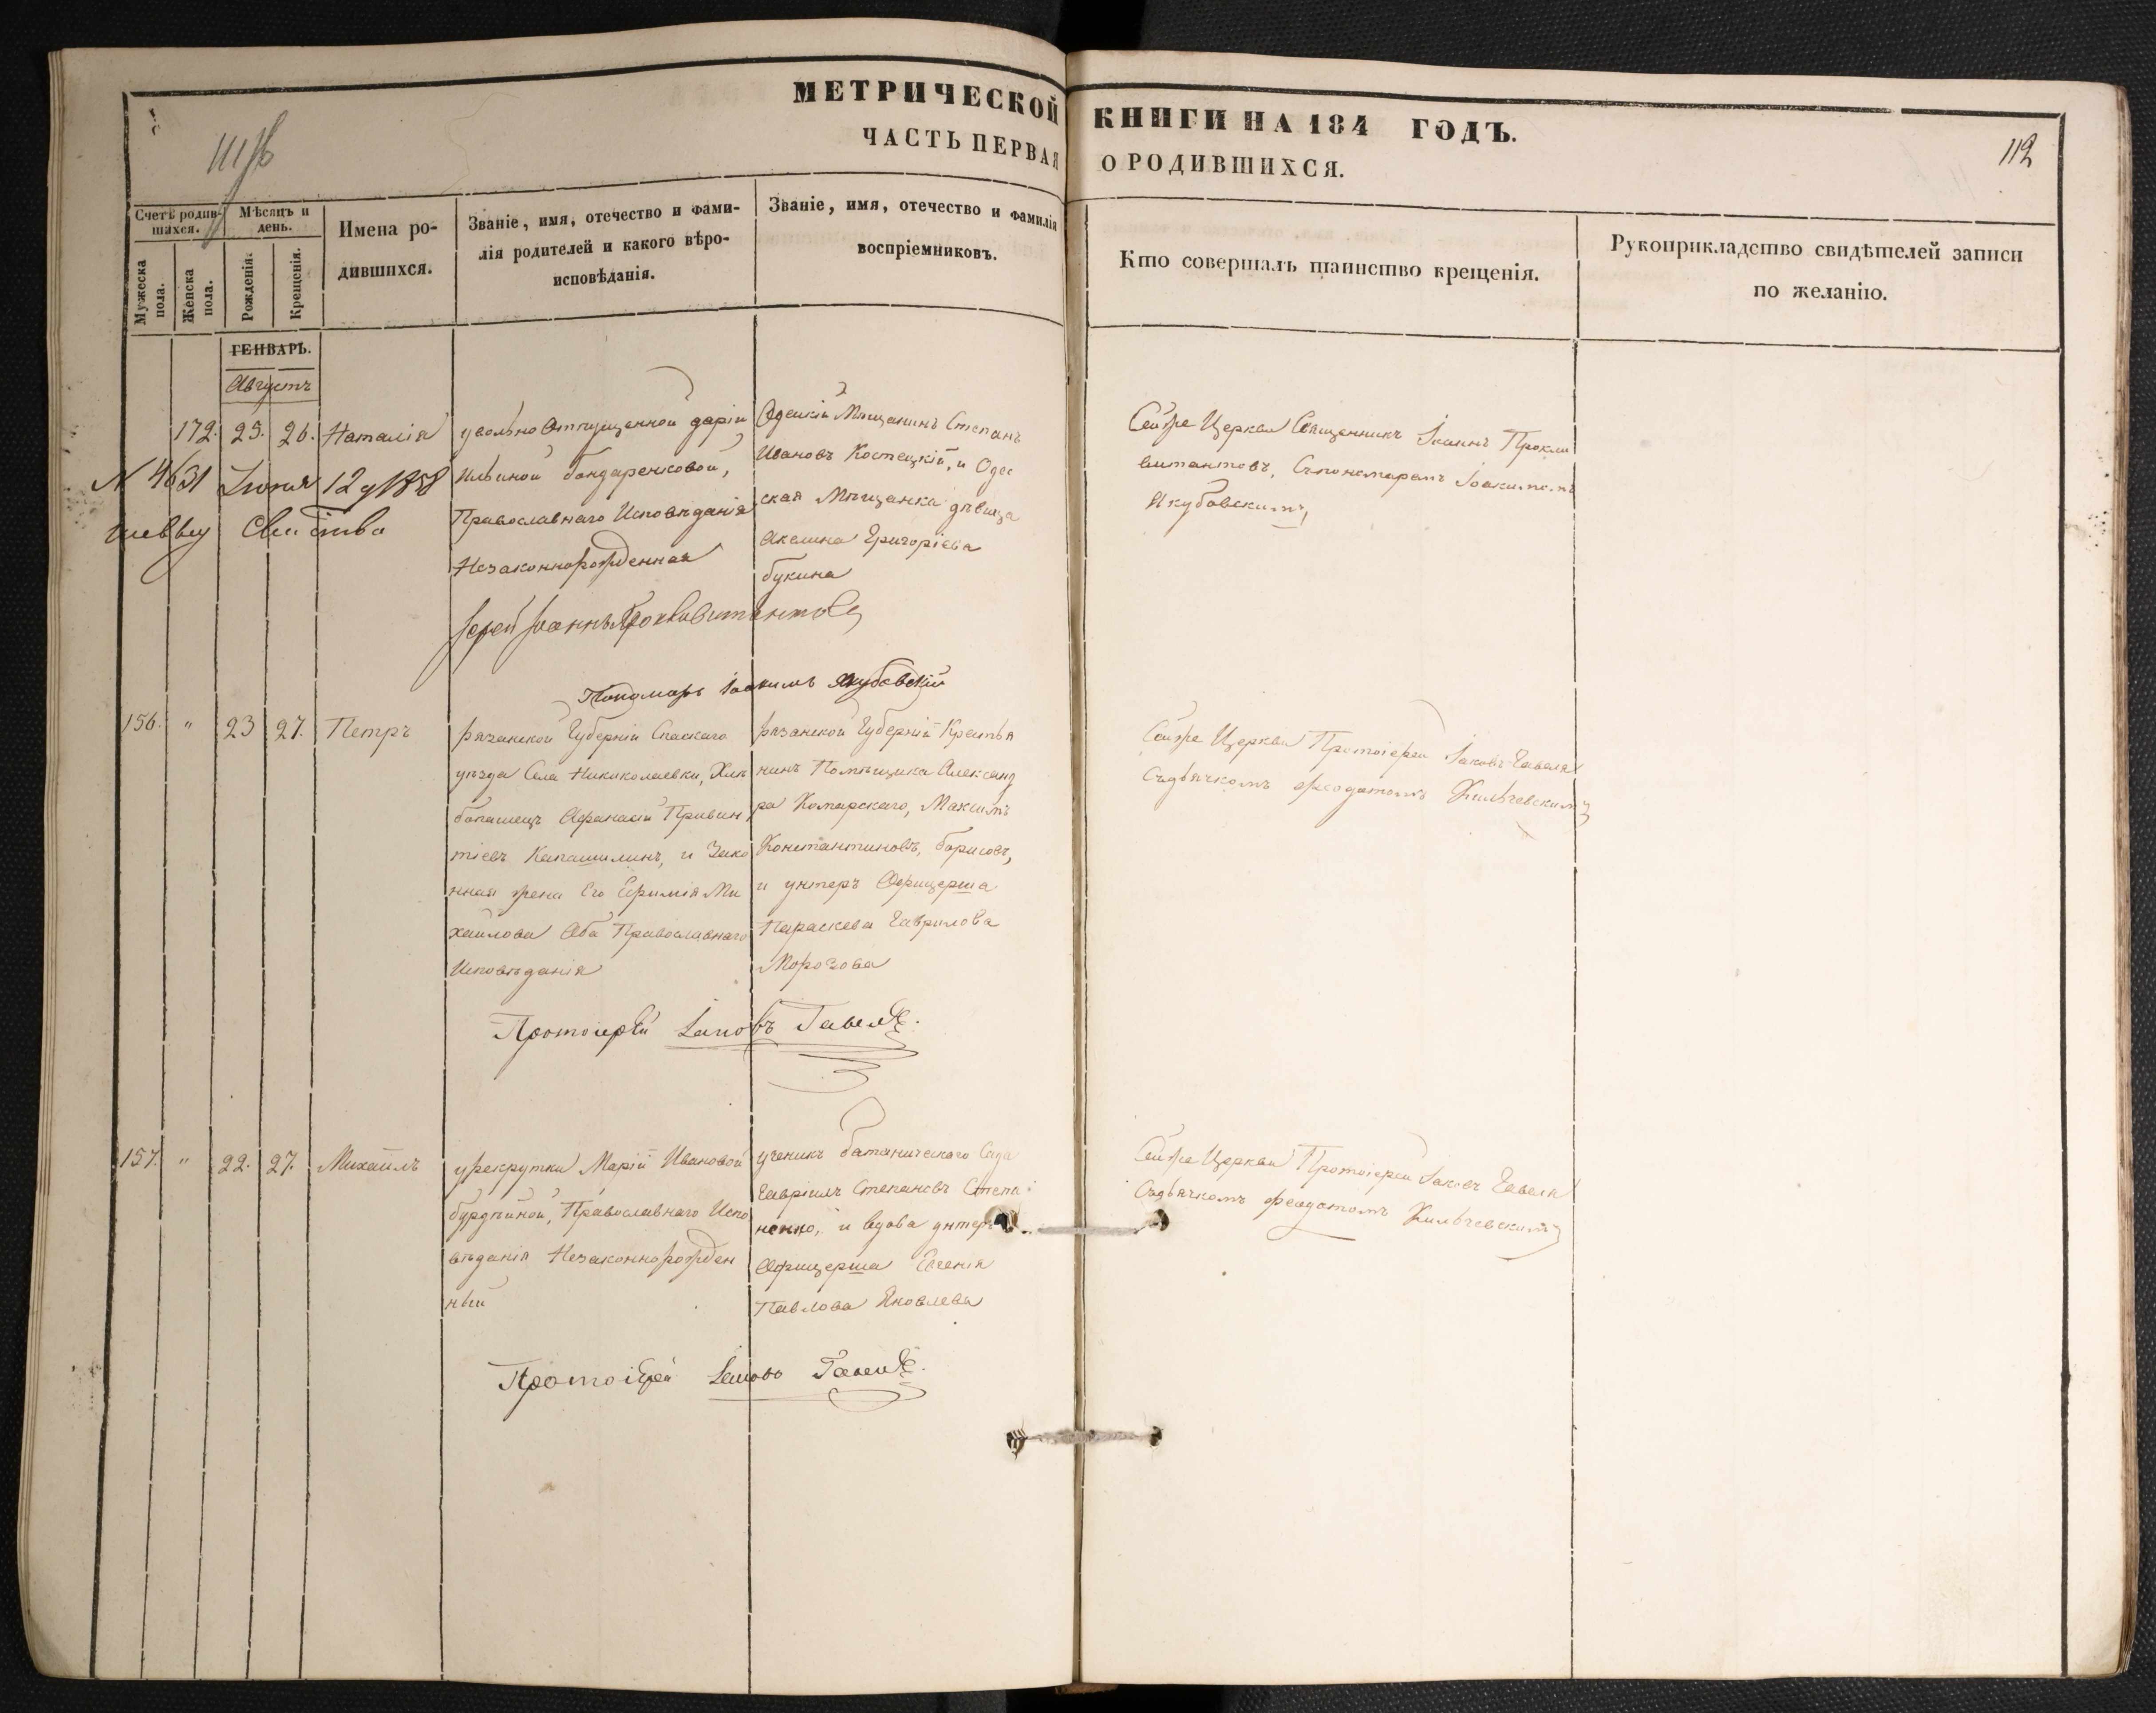 МЕТРИЧЕСКОЙ КНИГИ НА 184 ГОДЪ.
ЧАСТЬ ПЕРВАЯ О РОДИВШИХСЯ.
112
Счетъ родившихся.
Мѣсяцъ и день.
Имена родившихся.
Званіе, имя, отечество и фамилія родителей и какого вѣроисповѣданія.
Званіе, имя, отечество и фамилія воспріемниковъ.
Кто совершалъ таинство крещенія.
Рукоприкладство свидѣтелей записи по желанію.
Мужеска пола.
Женска пола.
Рожденія.
Крещенія.
ГЕНВАРЬ.
Августъ
172. 25. 26. Наталія
увольно Отпущенной Даріи
Ильиной бондаренковой,
Православнаго Исповѣданія
Незаконнорожденная
Одескій Мѣщанинъ Степанъ
Ивановъ Костецкій, и Одес
ская Мѣщанка дѣвица
Акелина Григоріева
букина
Сей же Церкви Священникъ Іоаннъ Прокли
витантовъ, Съ пономаремъ Іоакимомъ
Якубовскимъ,
N 4631 Іюня 12 д 1858
Іерей Іоаннъ
Пономарь Іоакимъ Якубовскій
156. " 23 27. Петръ
Рязанской Губерніи Спаскаго
уѣзда Села Никиколаевки, Хлѣ
бопашецъ Афанасій
и Зако
нная жена Его Ефимія Ми
хайлова Оба Православнаго
Исповѣданія
Рязанской Губерніи Крестья
нинъ Помѣщика Александ
ра Комарскаго, Максимъ
Константиновъ, борисовъ,
и унтеръ Офицерша
Параскева Гаврилова
Морозова
Сей же Церкви Протоіерей Іаковъ Гавеля
Съ дьячкомъ Феодотомъ
Протоіерей Іаковъ Гавеля.
157. " 22. 27. Михаилъ
у рекрутки Маріи Ивановой
бурдѣиной, Православнаго Испо
вѣданія Незаконнорожден
ный
ученикъ ботаническаго Сада
Гавріилъ Степановъ Степа
ненко, и вдова унтеръ
Офицерша Евгенія
Павлова Яковлева
Сей же Церкви Протоіерей Іаковъ Гавеля
Съ дьячкомъ Феодотомъ
Протоіерей Іаковъ Гавеля.